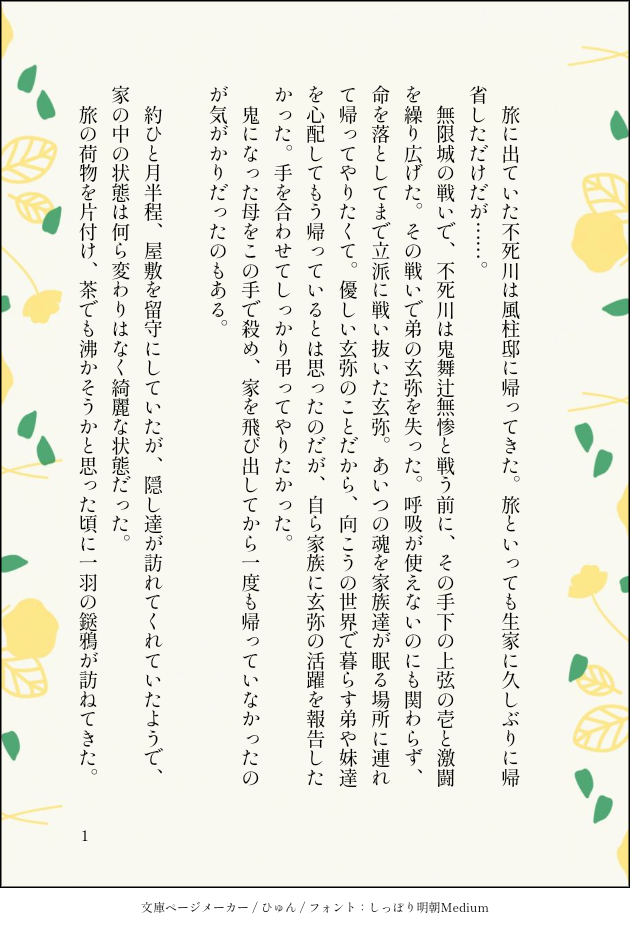 旅に出ていた不死川は風柱邸に帰ってきた。旅といっても生家に久しぶりに帰
省しただけだが……。
　無限城の戦いで、不死川は鬼舞辻無惨と戦う前に、その手下の上弦の壱と激闘
を繰り広げた。その戦いで弟の玄弥を失った。呼吸が使えないのにも関わらず、
命を落としてまで立派に戦い抜いた玄弥。あいつの魂を家族達が眠る場所に連れ
て帰ってやりたくて。優しい玄弥のことだから、向こうの世界で暮らす弟や妹達
を心配してもう帰っているとは思ったのだが、自ら家族に玄弥の活躍を報告した
かった。手を合わせてしっかり弔ってやりたかった。
　鬼になった母をこの手で殺め、家を飛び出してから一度も帰っていなかったの
が気がかりだったのもある。
　約ひと月半程、屋敷を留守にしていたが、隠し達が訪れてくれていたようで、
家の中の状態は何ら変わりはなく綺麗な状態だった。
　旅の荷物を片付け、茶でも沸かそうかと思った頃に一羽の鎹鴉が訪ねてきた。
1
文庫ページメーカー / ひゅん / フォント：しっぽり明朝Medium